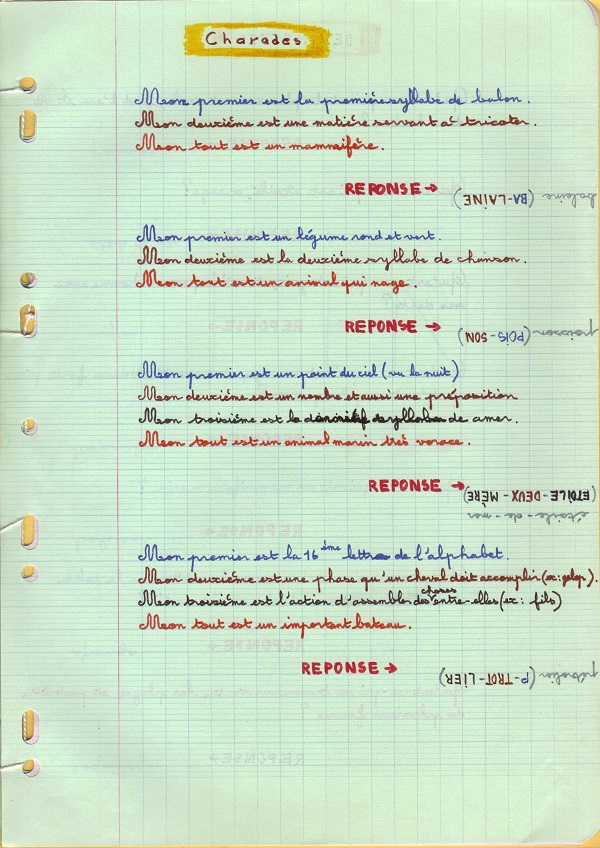 Charades
Mon premier est la première syllabe de balon.
Mon deuxième est une matière servant à tricoter.
Mon tout est un mammifère.
REPONSE → (BA-LAINE) baleine
Mon premier est un légume rond et vert.
Mon deuxième est la deuxième syllabe de chanson.
Mon tout est un animal qui nage.
REPONSE → (POIS-SON) poisson
Mon premier est un point du ciel (vu la nuit)
Mon deuxième est un nombre et aussi une préposition
Mon troisième est la syllabe de amer.
Mon tout est un animal marin très vorace.
REPONSE → (ETOILE-DEUX-MÈRE)
étoile-de-mer
Mon premier est la 16ème lettre de l'alphabet.
Mon deuxième est une phase qu'un cheval doit accomplir (ex: galop).
Mon troisième est l'action d'assembler des choses entre-elles (ex: fils)
Mon tout est un important bateau.
REPONSE → (P-TROT-LIER) pétrolier